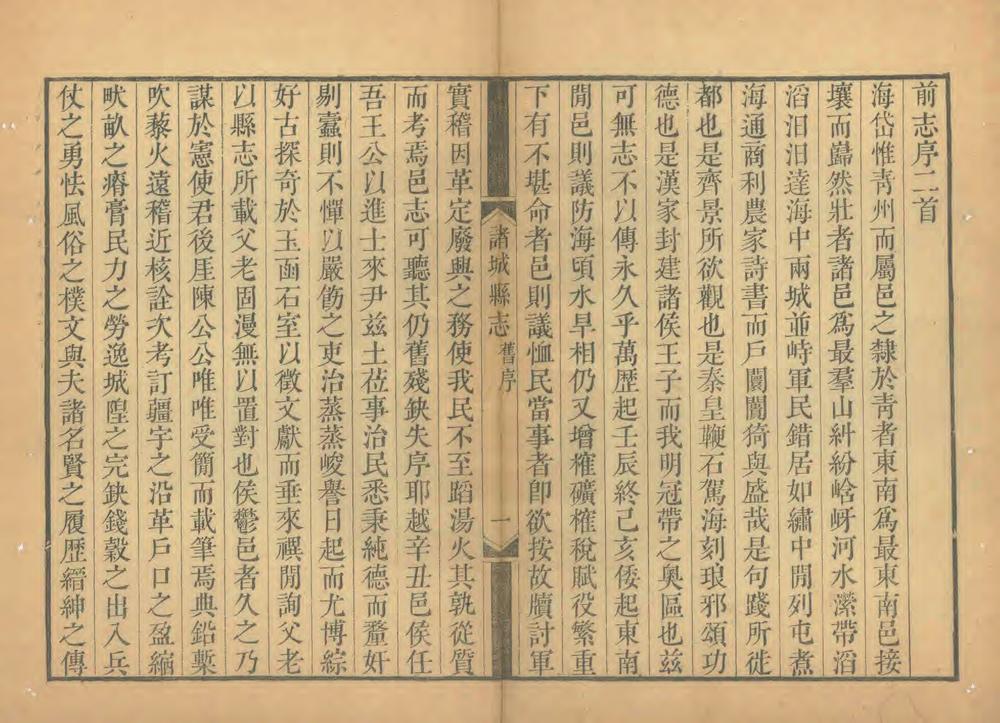 前志序二首
海岱惟青州而屬邑之隸於青者東南爲最東南邑接
壤而巋然壯者諸邑爲最羣山糾紛崯岈河水瀠帶滔
滔汩汩達海中兩城並峙軍民錯居如繡中閒列屯煮
海通商利農家詩書而戶闤闠猗與盛哉是句踐所徙
都也是齊景所欲觀也是秦皇鞭石駕海刻琅邪頌功
德也是漢家封建諸侯王子而我明冠帶之奧區也茲
可無志不以傳永久乎萬歷起壬辰終己亥倭起東南
閒邑則議防海頃水旱相仍又增榷礦榷稅賦役繁重
下有不堪命者邑則議恤民當事者卽欲按故牘討軍
諸城縣志 舊序 一
實稽因革定廢興之務使我民不至蹈湯火其孰從質
而考焉邑志可聽其仍舊殘缺失序耶越辛丑邑侯任
吾王公以進士來尹茲土莅事治民悉秉純德而釐奸
剔蠹則不憚以嚴飭之吏治蒸蒸峻譽日起而尤博綜
好古探奇於玉函石室以徵文獻而垂來禩閒詢父老
以縣志所載父老固漫無以置對也侯鬱邑者久之乃
謀於憲使君後厓陳公公唯唯受簡而載筆焉典鉛槧
吹藜火遠稽近核詮次考訂疆宇之沿革戶口之盈縮
畎畝之瘠膏民力之勞逸城隍之完缺錢穀之出入兵
仗之勇怯風俗之樸文與夫諸名賢之履歷縉紳之傳